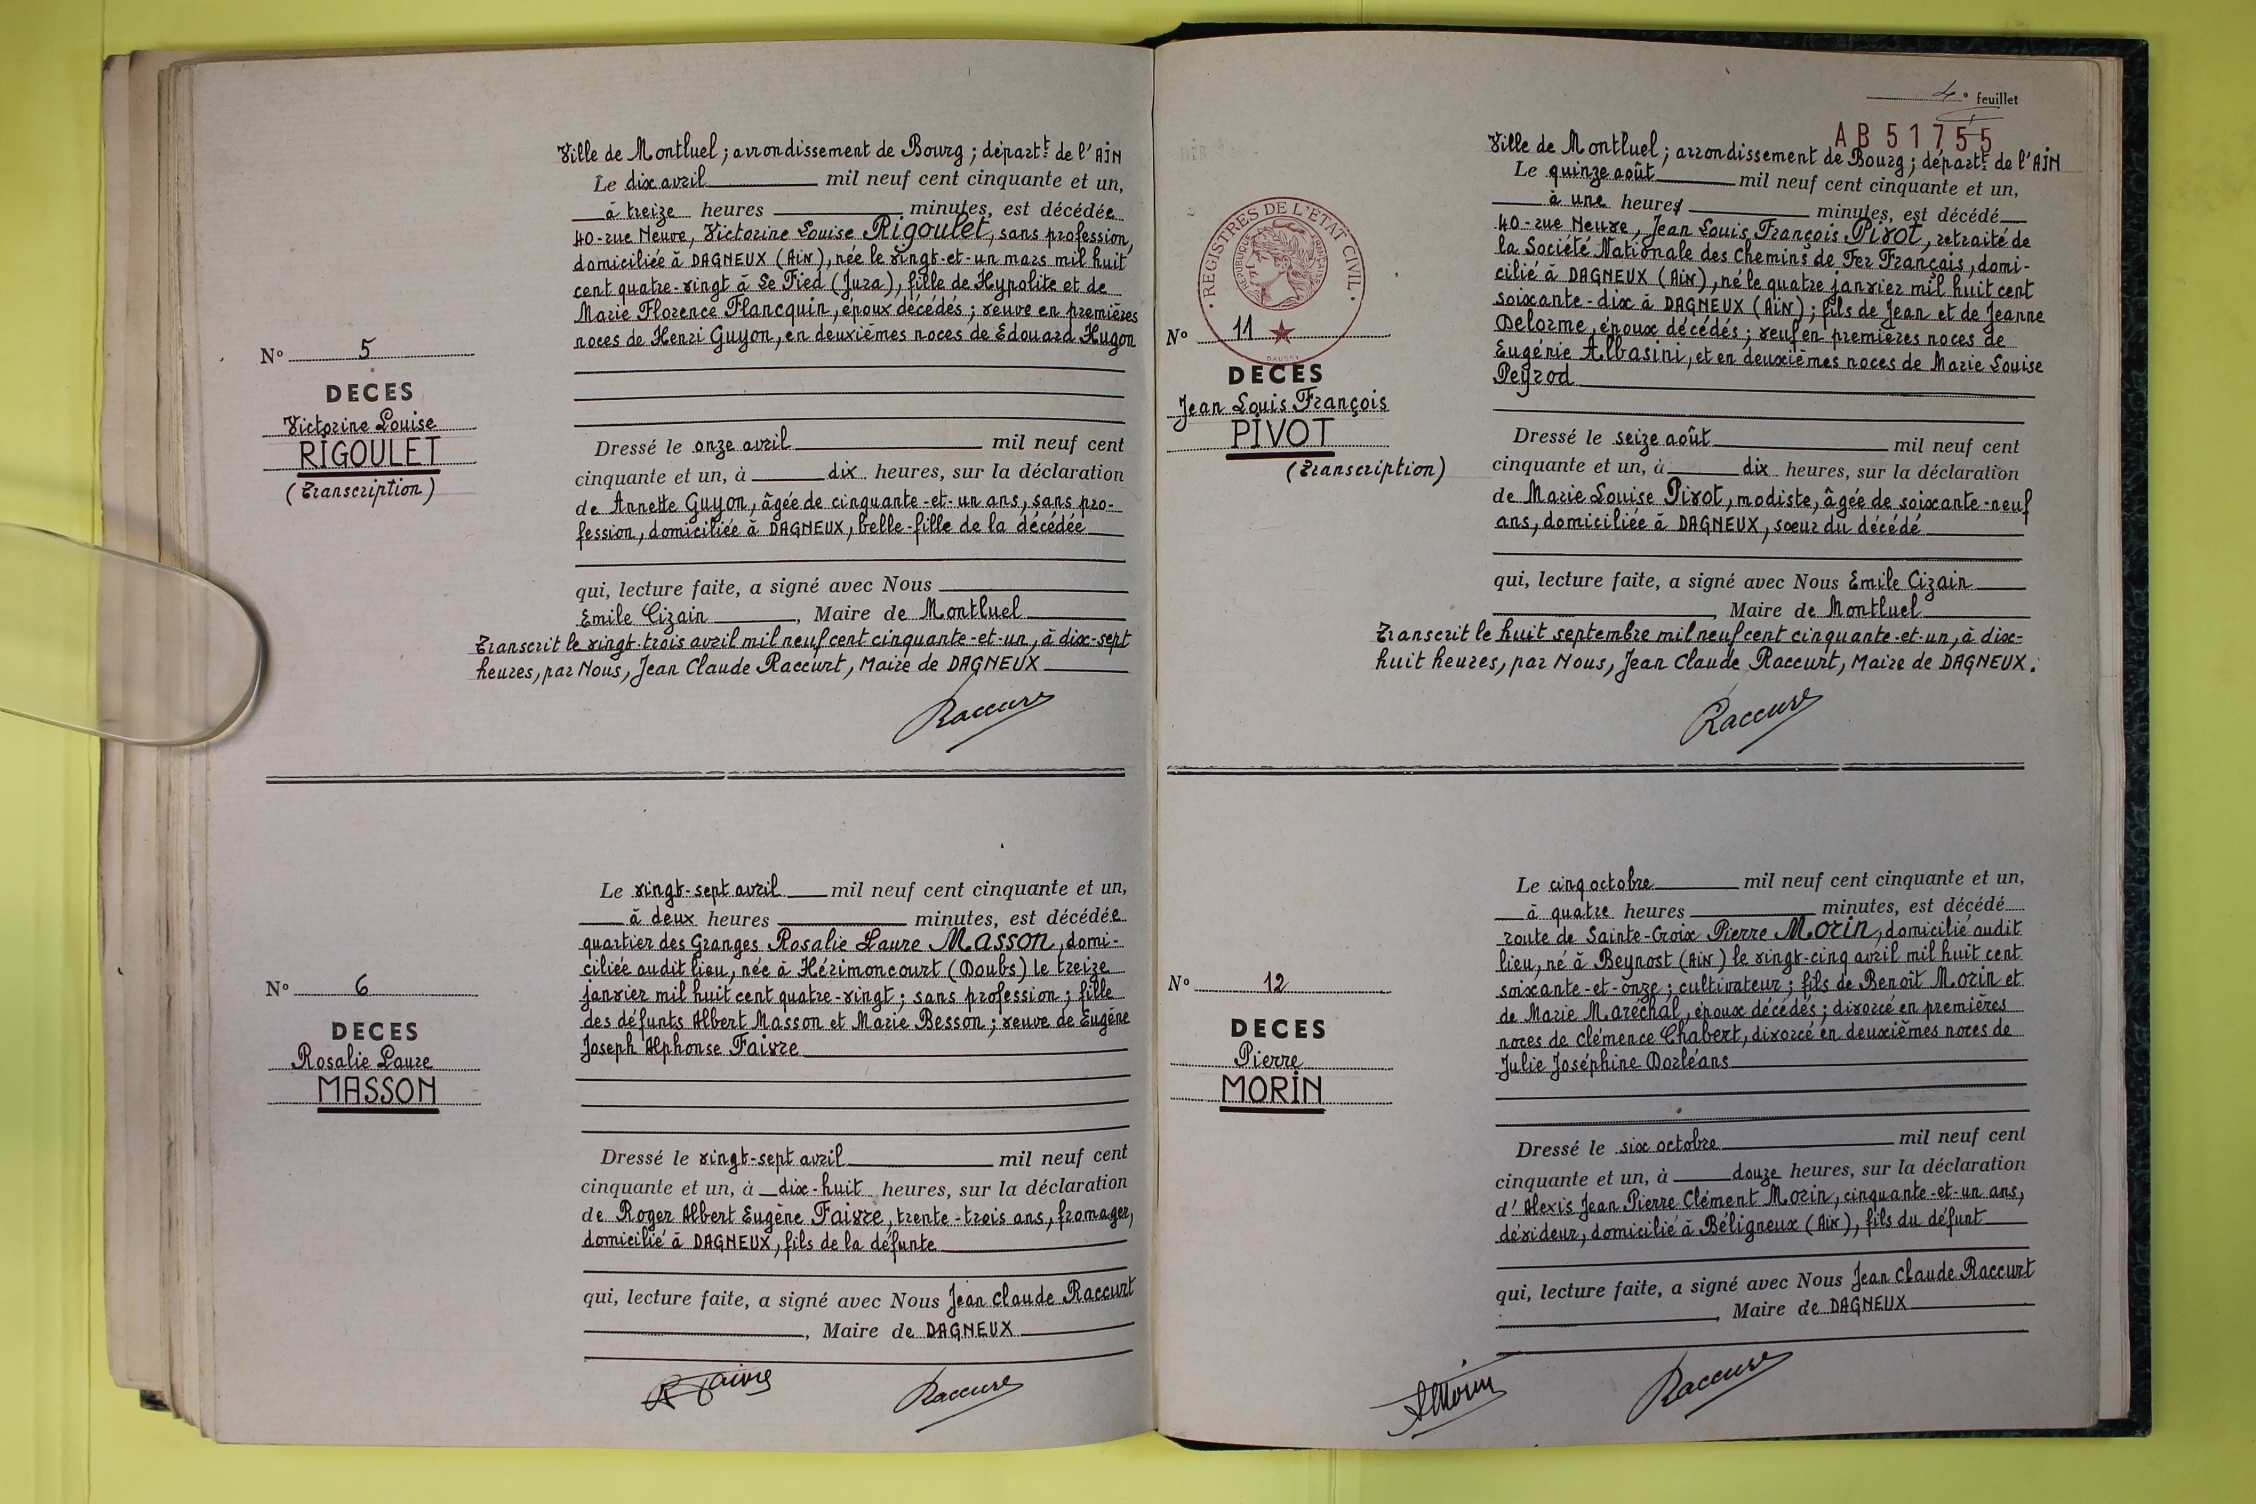 Ville de Montluel ; arrondissement de Bourg ; départt de l'AIN
Le dix avril mil neuf cent cinquante et un,
à treize heures minutes, est décédée
40 - rue Neuve, Victorine Louise Rigoulet, sans profession,
domiciliée à DAGNEUX (AIN), née le vingt-et-un mars mil huit
cent quatre-vingt à Le Fied (Jura), fille de Hypolite et de
Marie Florence Flancquin, époux décédés ; veuve en premières
noces de Henri Guyon, en deuxièmes noces de Edouard Hugon
N° 5
DECES
Victorine Louise
RIGOULET
(Transcription)
Dressé le onze avril mil neuf cent
cinquante et un, à dix heures, sur la déclaration
de Annette Guyon, âgée de cinquante-et-un ans, sans pro-
fession, domiciliée à DAGNEUX, belle-fille de la décédée
qui, lecture faite, a signé avec Nous
Emile Cizain, Maire de Montluel
Transcrit le vingt-trois avril mil neuf cent cinquante-et-un, à dix-sept
heures, par Nous, Jean Claude Raccurt, Maire de DAGNEUX
Raccurt
Le vingt-sept avril mil neuf cent cinquante et un,
à deux heures minutes, est décédée
quartier des Granges Rosalie Laure Masson, domi-
ciliée audit lieu, née à Hérimoncourt (Doubs) le treize
janvier mil huit cent quatre-vingt ; sans profession ; fille
des défunts Albert Masson et Marie Besson ; veuve de Eugène
Joseph Alphonse Faivre
N° 6
DECES
Rosalie Laure
MASSON
Dressé le vingt-sept avril mil neuf cent
cinquante et un, à dix-huit heures, sur la déclaration
de Roger Albert Eugène Faivre, trente-trois ans, fromager,
domicilié à DAGNEUX, fils de la défunte
qui, lecture faite, a signé avec Nous Jean Claude Raccurt
, Maire de DAGNEUX
R Faivre Raccurt
4e feuillet
AB 51755
Ville de Montluel ; arrondissement de Bourg ; départt de l'AIN
Le quinze août mil neuf cent cinquante et un,
à une heure minutes, est décédé
40 - rue Neuve, Jean Louis François Pivot, retraité de
la Société Nationale des Chemins de Fer Français, domi-
cilié à DAGNEUX (AIN), né le quatre janvier mil huit cent
soixante-dix à DAGNEUX (AIN) ; fils de Jean et de Jeanne
Delorme, époux décédés ; veuf en premières noces de
Eugénie Albasini, et en deuxièmes noces de Marie Louise
Peyrod
REGISTRES DE L'ETAT CIVIL
REPUBLIQUE FRANÇAISE
N° 11
DECES
Jean Louis François
PIVOT
(Transcription)
Dressé le seize août mil neuf cent
cinquante et un, à dix heures, sur la déclaration
de Marie Louise Pivot, modiste, âgée de soixante-neuf
ans, domiciliée à DAGNEUX, sœur du décédé
qui, lecture faite, a signé avec Nous Emile Cizain
, Maire de Montluel
Transcrit le huit septembre mil neuf cent cinquante-et-un, à dix-
huit heures, par Nous, Jean Claude Raccurt, Maire de DAGNEUX.
Raccurt
Le cinq octobre mil neuf cent cinquante et un,
à quatre heures minutes, est décédé
route de Sainte-Croix Pierre Morin, domicilié audit
lieu, né à Beynost (AIN) le vingt-cinq avril mil huit cent
soixante-et-onze ; cultivateur ; fils de Benoît Morin et
de Marie Maréchal, époux décédés ; divorcé en premières
noces de Clémence Chabert, divorcé en deuxièmes noces de
Julie Joséphine Dorléans
N° 12
DECES
Pierre
MORIN
Dressé le six octobre mil neuf cent
cinquante et un, à douze heures, sur la déclaration
d'Alexis Jean Pierre Clément Morin, cinquante-et-un ans,
dévideur, domicilié à Béligneux (Ain), fils du défunt
qui, lecture faite, a signé avec Nous Jean Claude Raccurt
, Maire de DAGNEUX
AMorin Raccurt